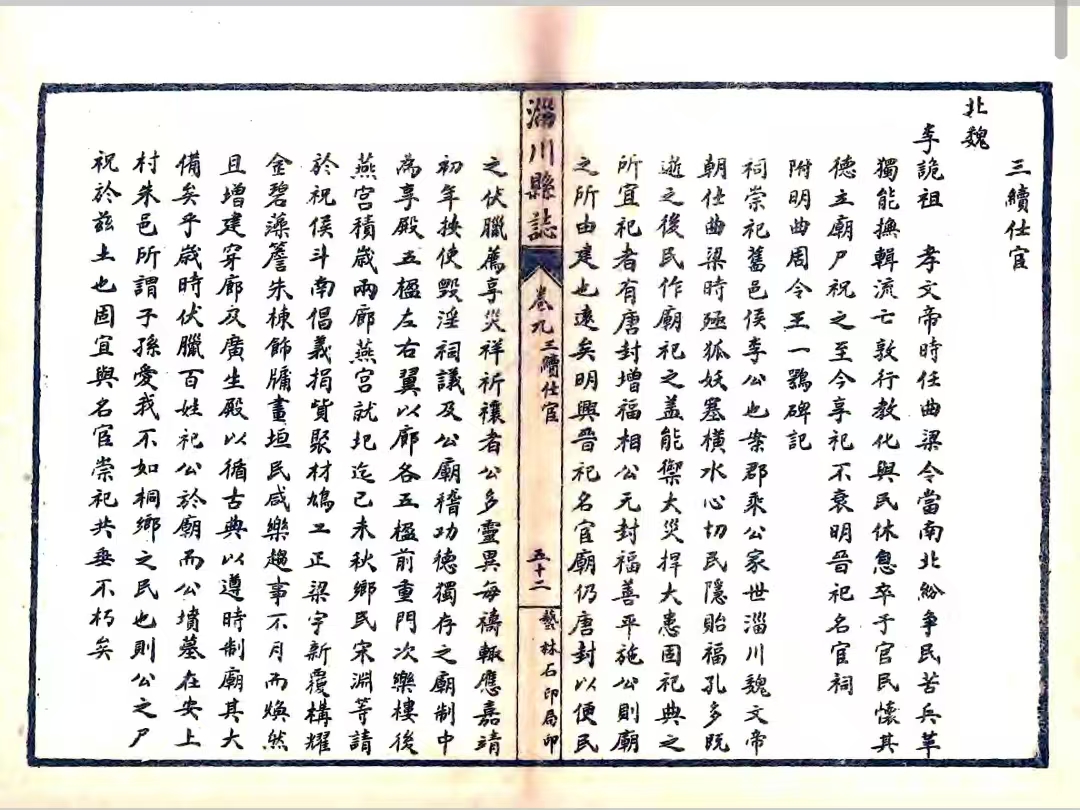 三續仕宦
北魏
李詭祖　孝文帝時任曲梁令當南北紛爭民苦兵革
獨能撫輯流亡敦行教化與民休息卒于官民懷其
德立廟尸祝之至今享祀不衰明晉祀名宦祠
附明曲周令王一鶚碑記
祠崇祀舊邑侯李公也案郡乘公家世淄川魏文帝
朝仕曲梁時殛狐妖塞橫水心切民隱貽福孔多既
逝之後民作廟祀之盖能禦大災捍大患固祀典之
所宜祀者有唐封增福相公元封福善平施公則廟
之所由建也遠矣明興晉祀名宦廟仍唐封以便民
淄川縣誌
卷九
三續仕宦
五十二
藝林石印局印
之伏臘薦享災祥祈禳者公多靈異每禱輒應嘉靖
初年按使毀淫祠議及公廟稽功德獨存之廟制中
為享殿五楹左右翼以廊各五楹前重門次樂樓後
燕宮積歲兩廊燕宮就圮迄己未秋鄉民宋淵等請
於祝侯斗南倡義捐貲聚材鳩工正梁宇新覆構耀
金碧藻簷朱棟飾牗畫垣民咸樂趨事不月而煥然
且增建穿廊及廣生殿以循古典以遵時制廟其大
備矣乎歲時伏臘百姓祀公於廟而公墳墓在安上
村朱邑所謂子孫愛我不如桐鄉之民也則公之尸
祝於茲土也固宜與名宦崇祀共垂不朽矣